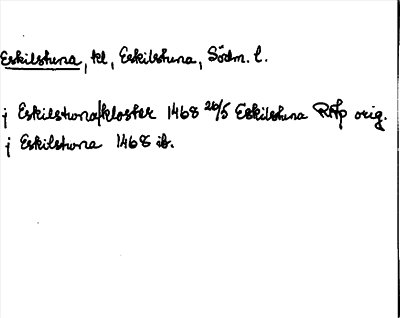 Eskilstuna, kl, Eskilstuna, Södm. l.
j Eskilstuna/kloster 1468 26/5 Eskilstuna RAp orig.
j Eskilstuna 1468 ib.